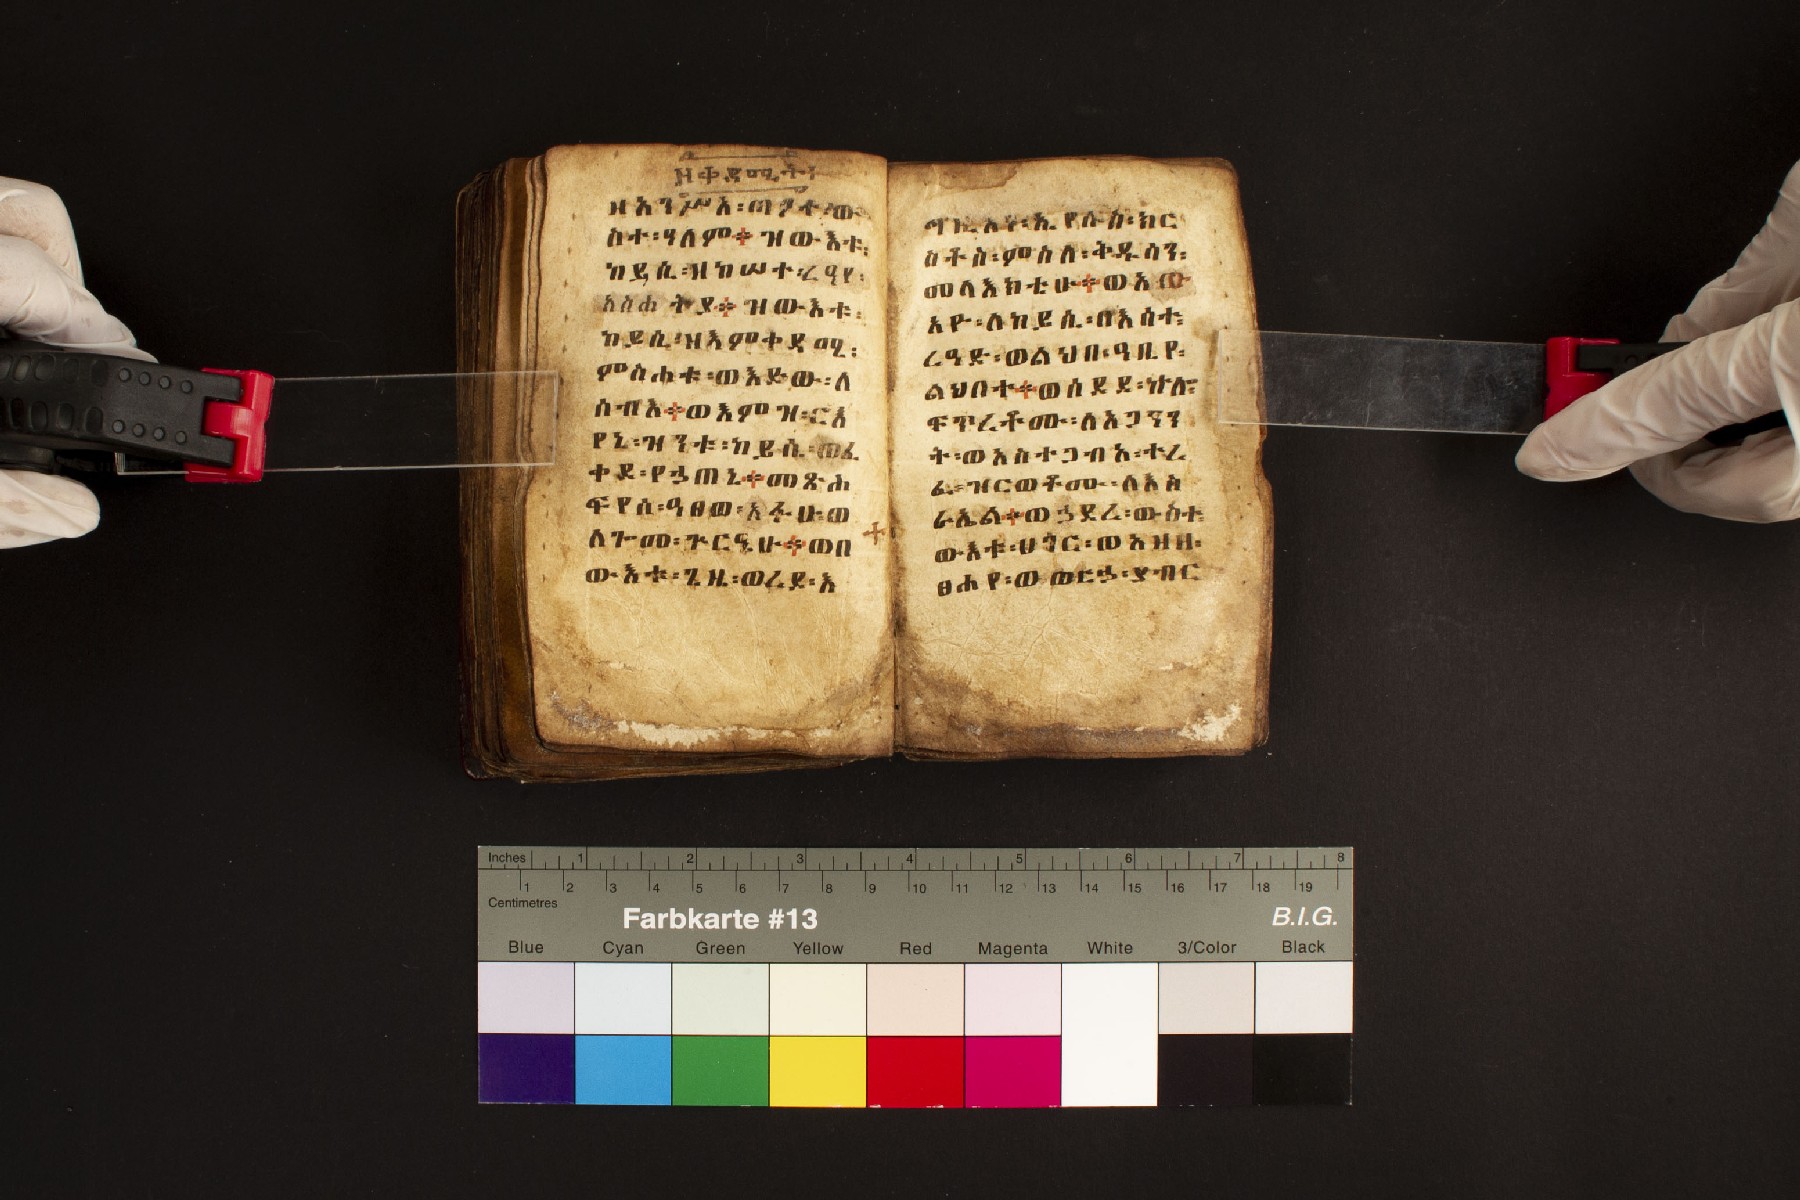 ዘቀዳሚት፡
ዘአንሥአ፡ጣዖተ፡ው
ስተ፡ዓለም፨ዝውእቱ፡
ከይሲ፡ዘከሠተ፡ረዓየ፡
አስሐትያ፨ዝውእቱ፡
ከይሲ፡ዘእምቀዳሚ፡
ምስሐቱ፡ወእድው፡ለ
ሰብእ፨ወእምዝ፡ርእ
የኒ፡ዝንቱ፡ከይሲ፡ወፈ
ቀደ፡የኃጠኒ፨መጽሐ
ፍየሰ፡ዓፀወ፡አፉሁ፡ወ
ለጐመ፡ጕርዔሁ፨ወበ
ውእቱ፡ጊዜ፡ወረደ፡እ
ግዚእነ፡ኢየሱስ፡ክር
ስቶስ፡ምስለ፡ቅዱሳን፡
መላእክቲሁ፨ወአው
አዮ፡ለከይሲ፡በእሰተ፡
ረዓድ፡ወልህበ፡ዓቢየ፡
ልህበተ፨ወሰደደ፡ኵሎ፡
ፍጥረቶሙ፡ለአጋንን
ት፡ወአስተጋብአ፡ተረ
ፈ፡ዝርወቶሙ፡ለእስ
ራኤል፨ወኃደረ፡ውስተ፡
ውእቱ፡ሀጕር፡ወአዝዘ፡
ፀሐየ፡ወወርኃ፡ያብር
Inches 1 2 3 4 5 6 7 8
1 2 3 4 5 6 7 8 9 10 11 12 13 14 15 16 17 18 19
Centimetres
Farbkarte #13 B.I.G.
Blue Cyan Green Yellow Red Magenta White 3/Color Black